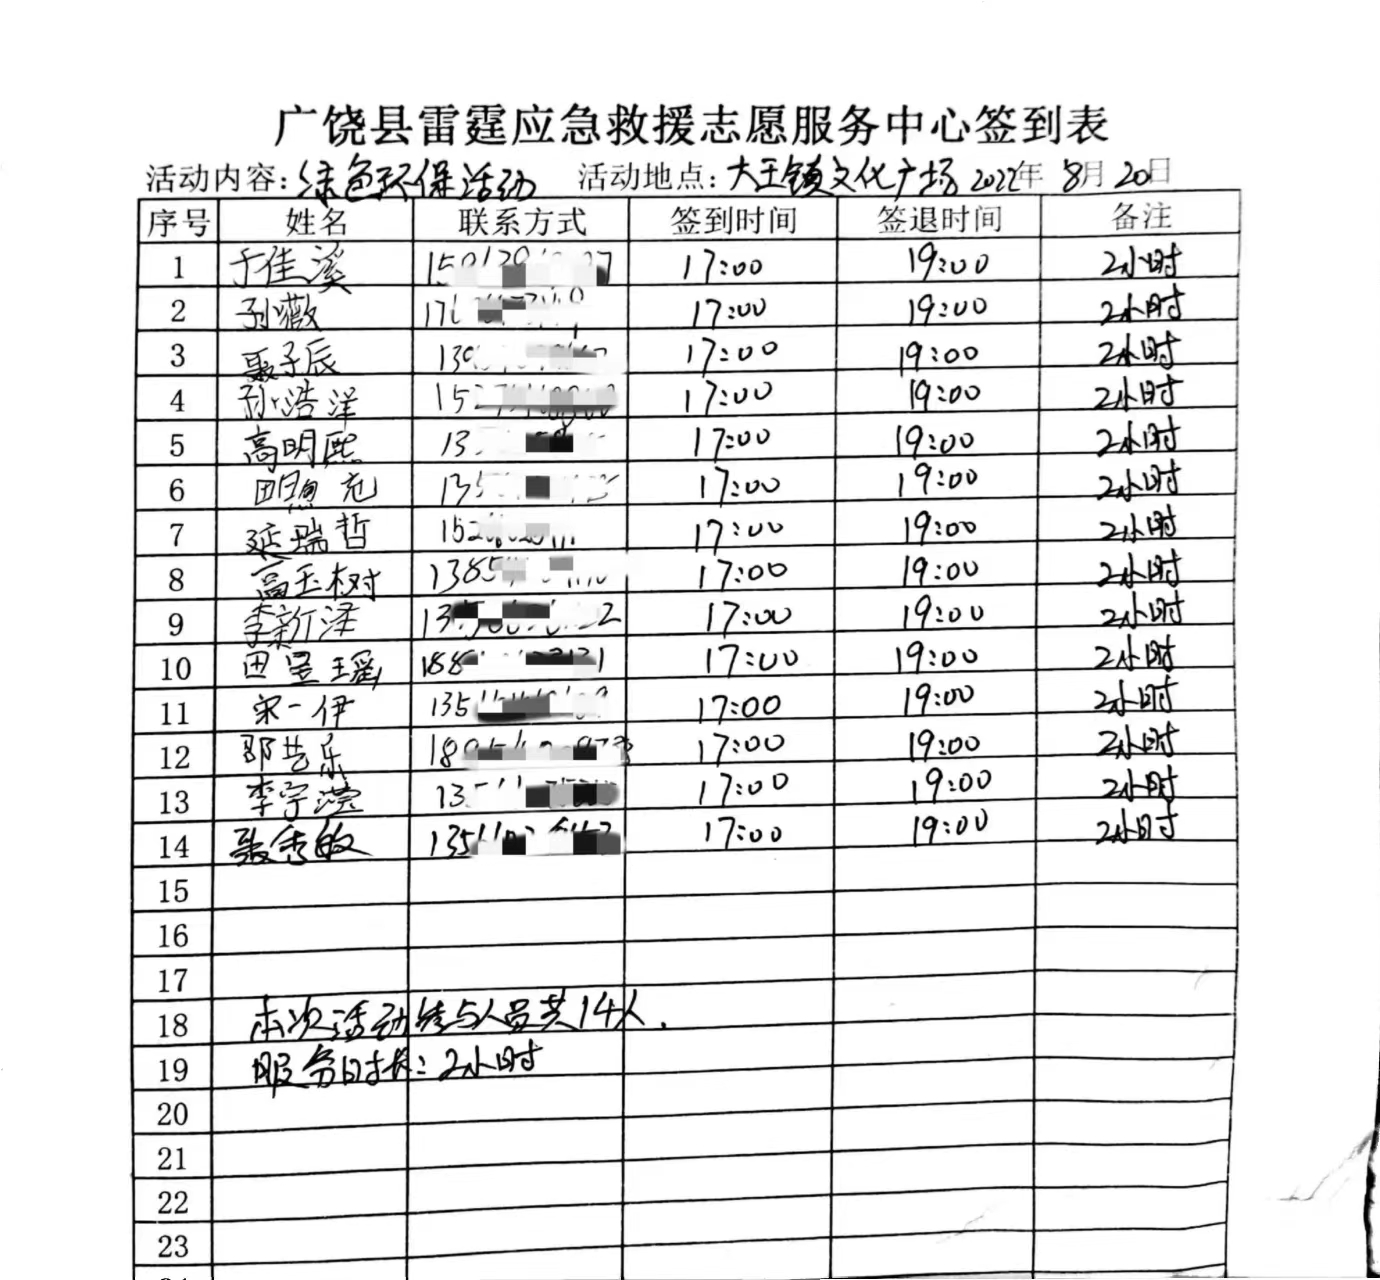 广饶县雷霆应急救援志愿服务中心签到表
活动内容：绿色环保活动 活动地点：大王镇文化广场 2022年 8月 20日
序号 姓名 联系方式 签到时间 签退时间 备注
1 于佳溪 17:00 19:00 2小时
2 孙薇 17:00 19:00 2小时
3 聂子辰 17:00 19:00 2小时
4 孙浩洋 17:00 19:00 2小时
5 高明熙 17:00 19:00 2小时
6 17:00 19:00 2小时
7 延瑞哲 17:00 19:00 2小时
8 高玉树 17:00 19:00 2小时
9 李新泽 17:00 19:00 2小时
10 田昱瑶 17:00 19:00 2小时
11 宋一伊 17:00 19:00 2小时
12 17:00 19:00 2小时
13 李宇滢 17:00 19:00 2小时
14 聂秀敏 17:00 19:00 2小时
15
16
17
18 本次活动参与人员共14人.
19 服务时长：2小时
20
21
22
23